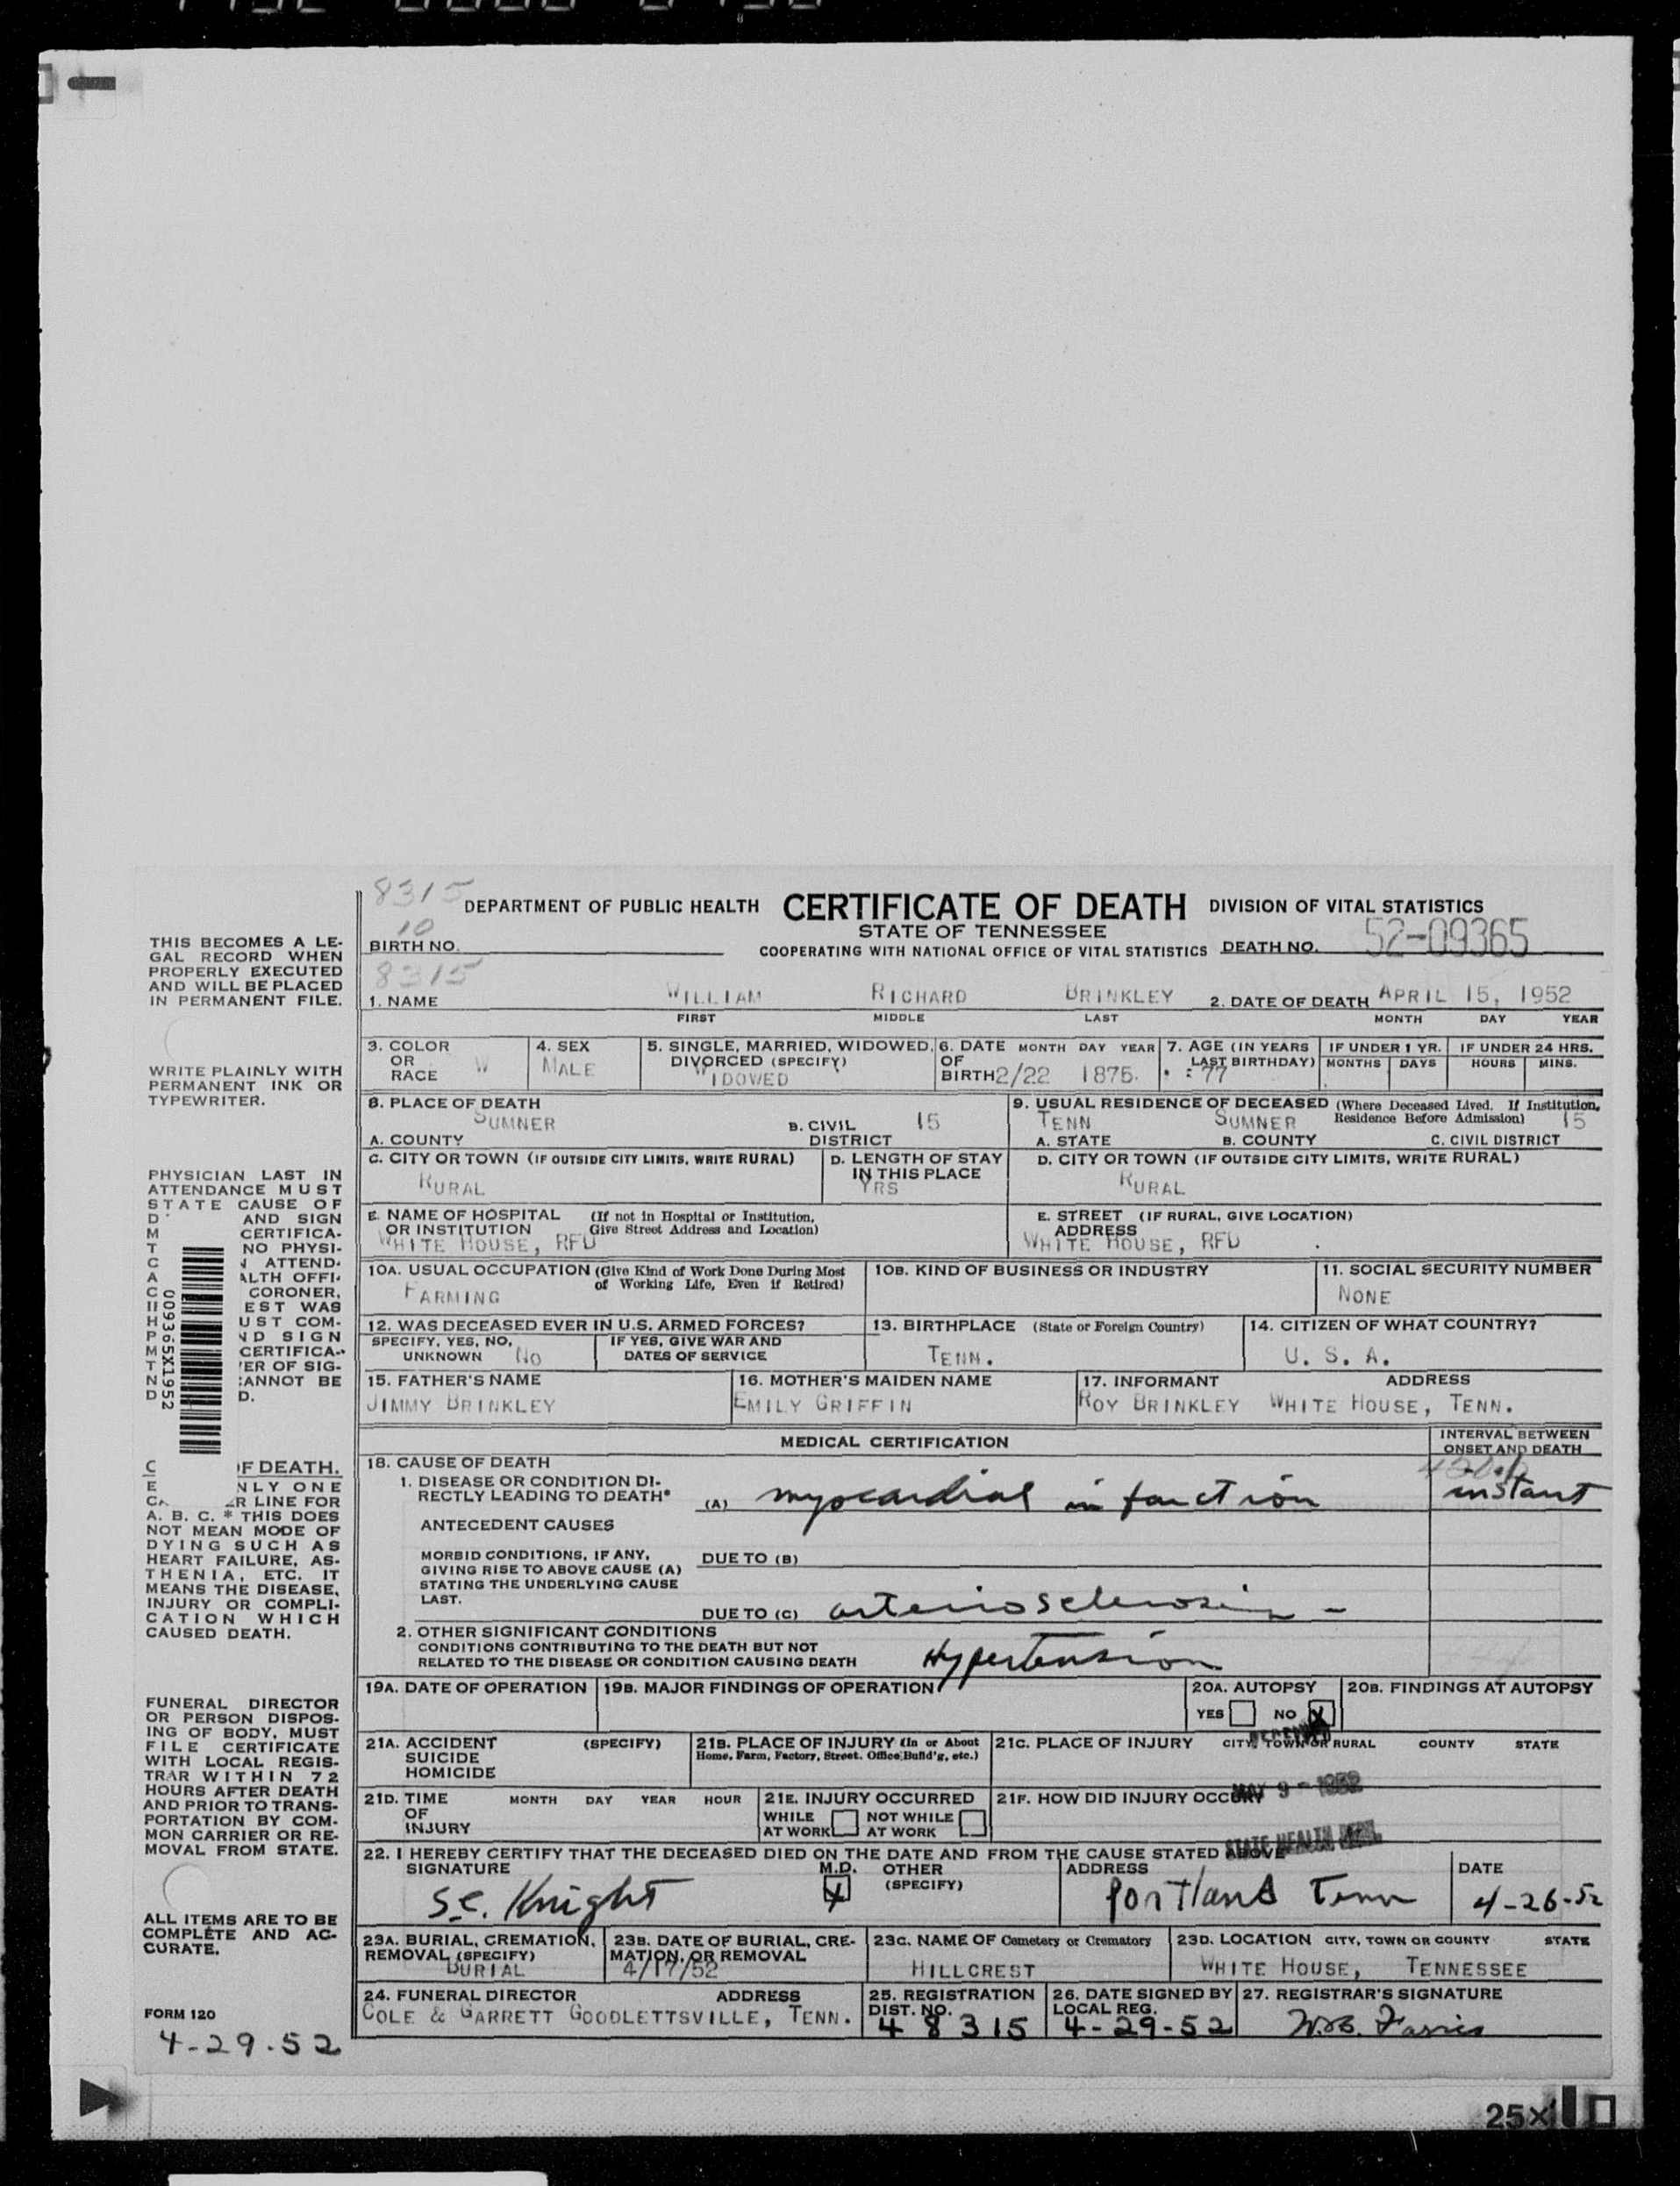 8315
DEPARTMENT OF PUBLIC HEALTH CERTIFICATE OF DEATH DIVISION OF VITAL STATISTICS
10
STATE OF TENNESSEE
BIRTH NO. COOPERATING WITH NATIONAL OFFICE OF VITAL STATISTICS DEATH NO. 52-09365
8315
1. NAME WILLIAM RICHARD BRINKLEY 2. DATE OF DEATH APRIL 15, 1952
FIRST MIDDLE LAST MONTH DAY YEAR
3. COLOR OR RACE W
4. SEX MALE
5. SINGLE, MARRIED, WIDOWED, DIVORCED (SPECIFY) WIDOWED
6. DATE OF BIRTH MONTH DAY YEAR 2/22 1875.
7. AGE (IN YEARS LAST BIRTHDAY) 77
IF UNDER 1 YR. MONTHS DAYS
IF UNDER 24 HRS. HOURS MINS.
8. PLACE OF DEATH
SUMNER
A. COUNTY
B. CIVIL DISTRICT 15
9. USUAL RESIDENCE OF DECEASED (Where Deceased Lived. If Institution, Residence Before Admission)
TENN SUMNER 15
A. STATE B. COUNTY C. CIVIL DISTRICT
C. CITY OR TOWN (IF OUTSIDE CITY LIMITS, WRITE RURAL)
RURAL
D. LENGTH OF STAY IN THIS PLACE
YRS
D. CITY OR TOWN (IF OUTSIDE CITY LIMITS, WRITE RURAL)
RURAL
E. NAME OF HOSPITAL OR INSTITUTION (If not in Hospital or Institution, Give Street Address and Location)
WHITE HOUSE, RFD
E. STREET ADDRESS (IF RURAL, GIVE LOCATION)
WHITE HOUSE, RFD
10A. USUAL OCCUPATION (Give Kind of Work Done During Most of Working Life, Even if Retired)
FARMING
10B. KIND OF BUSINESS OR INDUSTRY
11. SOCIAL SECURITY NUMBER
NONE
12. WAS DECEASED EVER IN U.S. ARMED FORCES?
SPECIFY, YES, NO, UNKNOWN No
IF YES, GIVE WAR AND DATES OF SERVICE
13. BIRTHPLACE (State or Foreign Country)
TENN.
14. CITIZEN OF WHAT COUNTRY?
U. S. A.
15. FATHER'S NAME
JIMMY BRINKLEY
16. MOTHER'S MAIDEN NAME
EMILY GRIFFIN
17. INFORMANT ADDRESS
ROY BRINKLEY WHITE HOUSE, TENN.
MEDICAL CERTIFICATION
INTERVAL BETWEEN ONSET AND DEATH
18. CAUSE OF DEATH
1. DISEASE OR CONDITION DI-
RECTLY LEADING TO DEATH* (A) myocardial infarction instant
ANTECEDENT CAUSES
MORBID CONDITIONS, IF ANY,
GIVING RISE TO ABOVE CAUSE (A)
STATING THE UNDERLYING CAUSE
LAST.
DUE TO (B)
DUE TO (C) arteriosclerosis -
2. OTHER SIGNIFICANT CONDITIONS
CONDITIONS CONTRIBUTING TO THE DEATH BUT NOT
RELATED TO THE DISEASE OR CONDITION CAUSING DEATH Hypertension
19A. DATE OF OPERATION
19B. MAJOR FINDINGS OF OPERATION
20A. AUTOPSY
YES NO X
20B. FINDINGS AT AUTOPSY
21A. ACCIDENT SUICIDE HOMICIDE (SPECIFY)
21B. PLACE OF INJURY (In or About Home, Farm, Factory, Street, Office Build'g, etc.)
21C. PLACE OF INJURY CITY, TOWN OR RURAL COUNTY STATE
RECEIVED
MAY 9 - 1952
STATE HEALTH DEPT.
21D. TIME OF INJURY MONTH DAY YEAR HOUR
21E. INJURY OCCURRED
WHILE AT WORK NOT WHILE AT WORK
21F. HOW DID INJURY OCCUR?
22. I HEREBY CERTIFY THAT THE DECEASED DIED ON THE DATE AND FROM THE CAUSE STATED ABOVE
SIGNATURE M.D. OTHER (SPECIFY) ADDRESS DATE
S.C. Knight X Portland Tenn 4-26-52
23A. BURIAL, CREMATION, REMOVAL (SPECIFY)
BURIAL
23B. DATE OF BURIAL, CRE-
MATION, OR REMOVAL
4/17/52
23C. NAME OF Cemetery or Crematory
HILLCREST
23D. LOCATION CITY, TOWN OR COUNTY STATE
WHITE HOUSE, TENNESSEE
24. FUNERAL DIRECTOR ADDRESS
COLE & GARRETT GOODLETTSVILLE, TENN.
25. REGISTRATION DIST. NO.
48315
26. DATE SIGNED BY LOCAL REG.
4-29-52
27. REGISTRAR'S SIGNATURE
THIS BECOMES A LE-
GAL RECORD WHEN
PROPERLY EXECUTED
AND WILL BE PLACED
IN PERMANENT FILE.
WRITE PLAINLY WITH
PERMANENT INK OR
TYPEWRITER.
PHYSICIAN LAST IN
ATTENDANCE MUST
STATE CAUSE OF
D AND SIGN
M CERTIFICA-
T NO PHYSI-
C ATTEND-
A ALTH OFFI-
C CORONER,
EST WAS
H UST COM-
P ND SIGN
M CERTIFICA-
T ER OF SIG-
N ANNOT BE
D D.
009365X1952
C OF DEATH.
E NLY ONE
CA ER LINE FOR
A. B. C. * THIS DOES
NOT MEAN MODE OF
DYING SUCH AS
HEART FAILURE, AS-
THENIA, ETC. IT
MEANS THE DISEASE,
INJURY OR COMPLI-
CATION WHICH
CAUSED DEATH.
FUNERAL DIRECTOR
OR PERSON DISPOS-
ING OF BODY, MUST
FILE CERTIFICATE
WITH LOCAL REGIS-
TRAR WITHIN 72
HOURS AFTER DEATH
AND PRIOR TO TRANS-
PORTATION BY COM-
MON CARRIER OR RE-
MOVAL FROM STATE.
ALL ITEMS ARE TO BE
COMPLETE AND AC-
CURATE.
FORM 120
4-29-52
25X